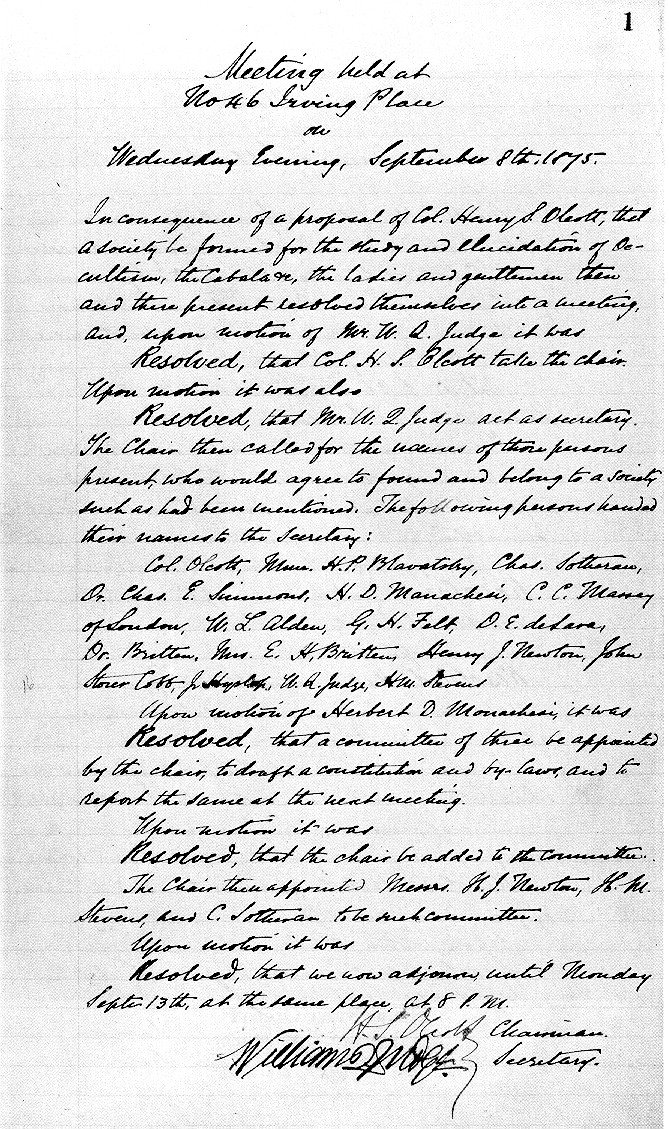 1
Meeting held at
No 46 Irving Place
on
Wednesday Evening, September 8th. 1875.
In consequence of a proposal of Col. Henry S. Olcott, that
a society be formed for the study and elucidation of Oc-
cultism, the Cabala &c, the ladies and gentlemen then
and there present resolved themselves into a meeting,
and, upon motion of Mr. W. Q. Judge it was
Resolved, that Col. H. S. Olcott take the chair.
Upon motion it was also
Resolved, that Mr. W. Q. Judge act as secretary.
The Chair then called for the names of those persons
present, who would agree to found and belong to a society
such as had been mentioned. The following persons handed
their names to the Secretary:
Col. Olcott, Mme. H. P. Blavatsky, Chas. Sotheran,
Dr. Chas. E. Simmons, H. D. Monachesi, C. C. Massey
of London, W. L. Alden, G. H. Felt, D. E. de Lara,
Dr. Britten, Mrs. E. H. Britten, Henry J. Newton, John
Storer Cobb, J. Hyslop, W. Q. Judge, H. M. Stevens
16
Upon motion of Herbert D. Monachesi, it was
Resolved, that a committee of three be appointed
by the chair, to draft a constitution and by-laws, and to
report the same at the next meeting.
Upon motion it was
Resolved, that the chair be added to the committee.
The Chair then appointed Messrs. H. J. Newton, H. M.
Stevens, and C. Sotheran to be such committee.
Upon motion it was
Resolved, that we now adjourn until Monday
Septr. 13th, at the same place, at 8 P. M.
H. S. Olcott Chairman.
William Q Judge. Secretary.